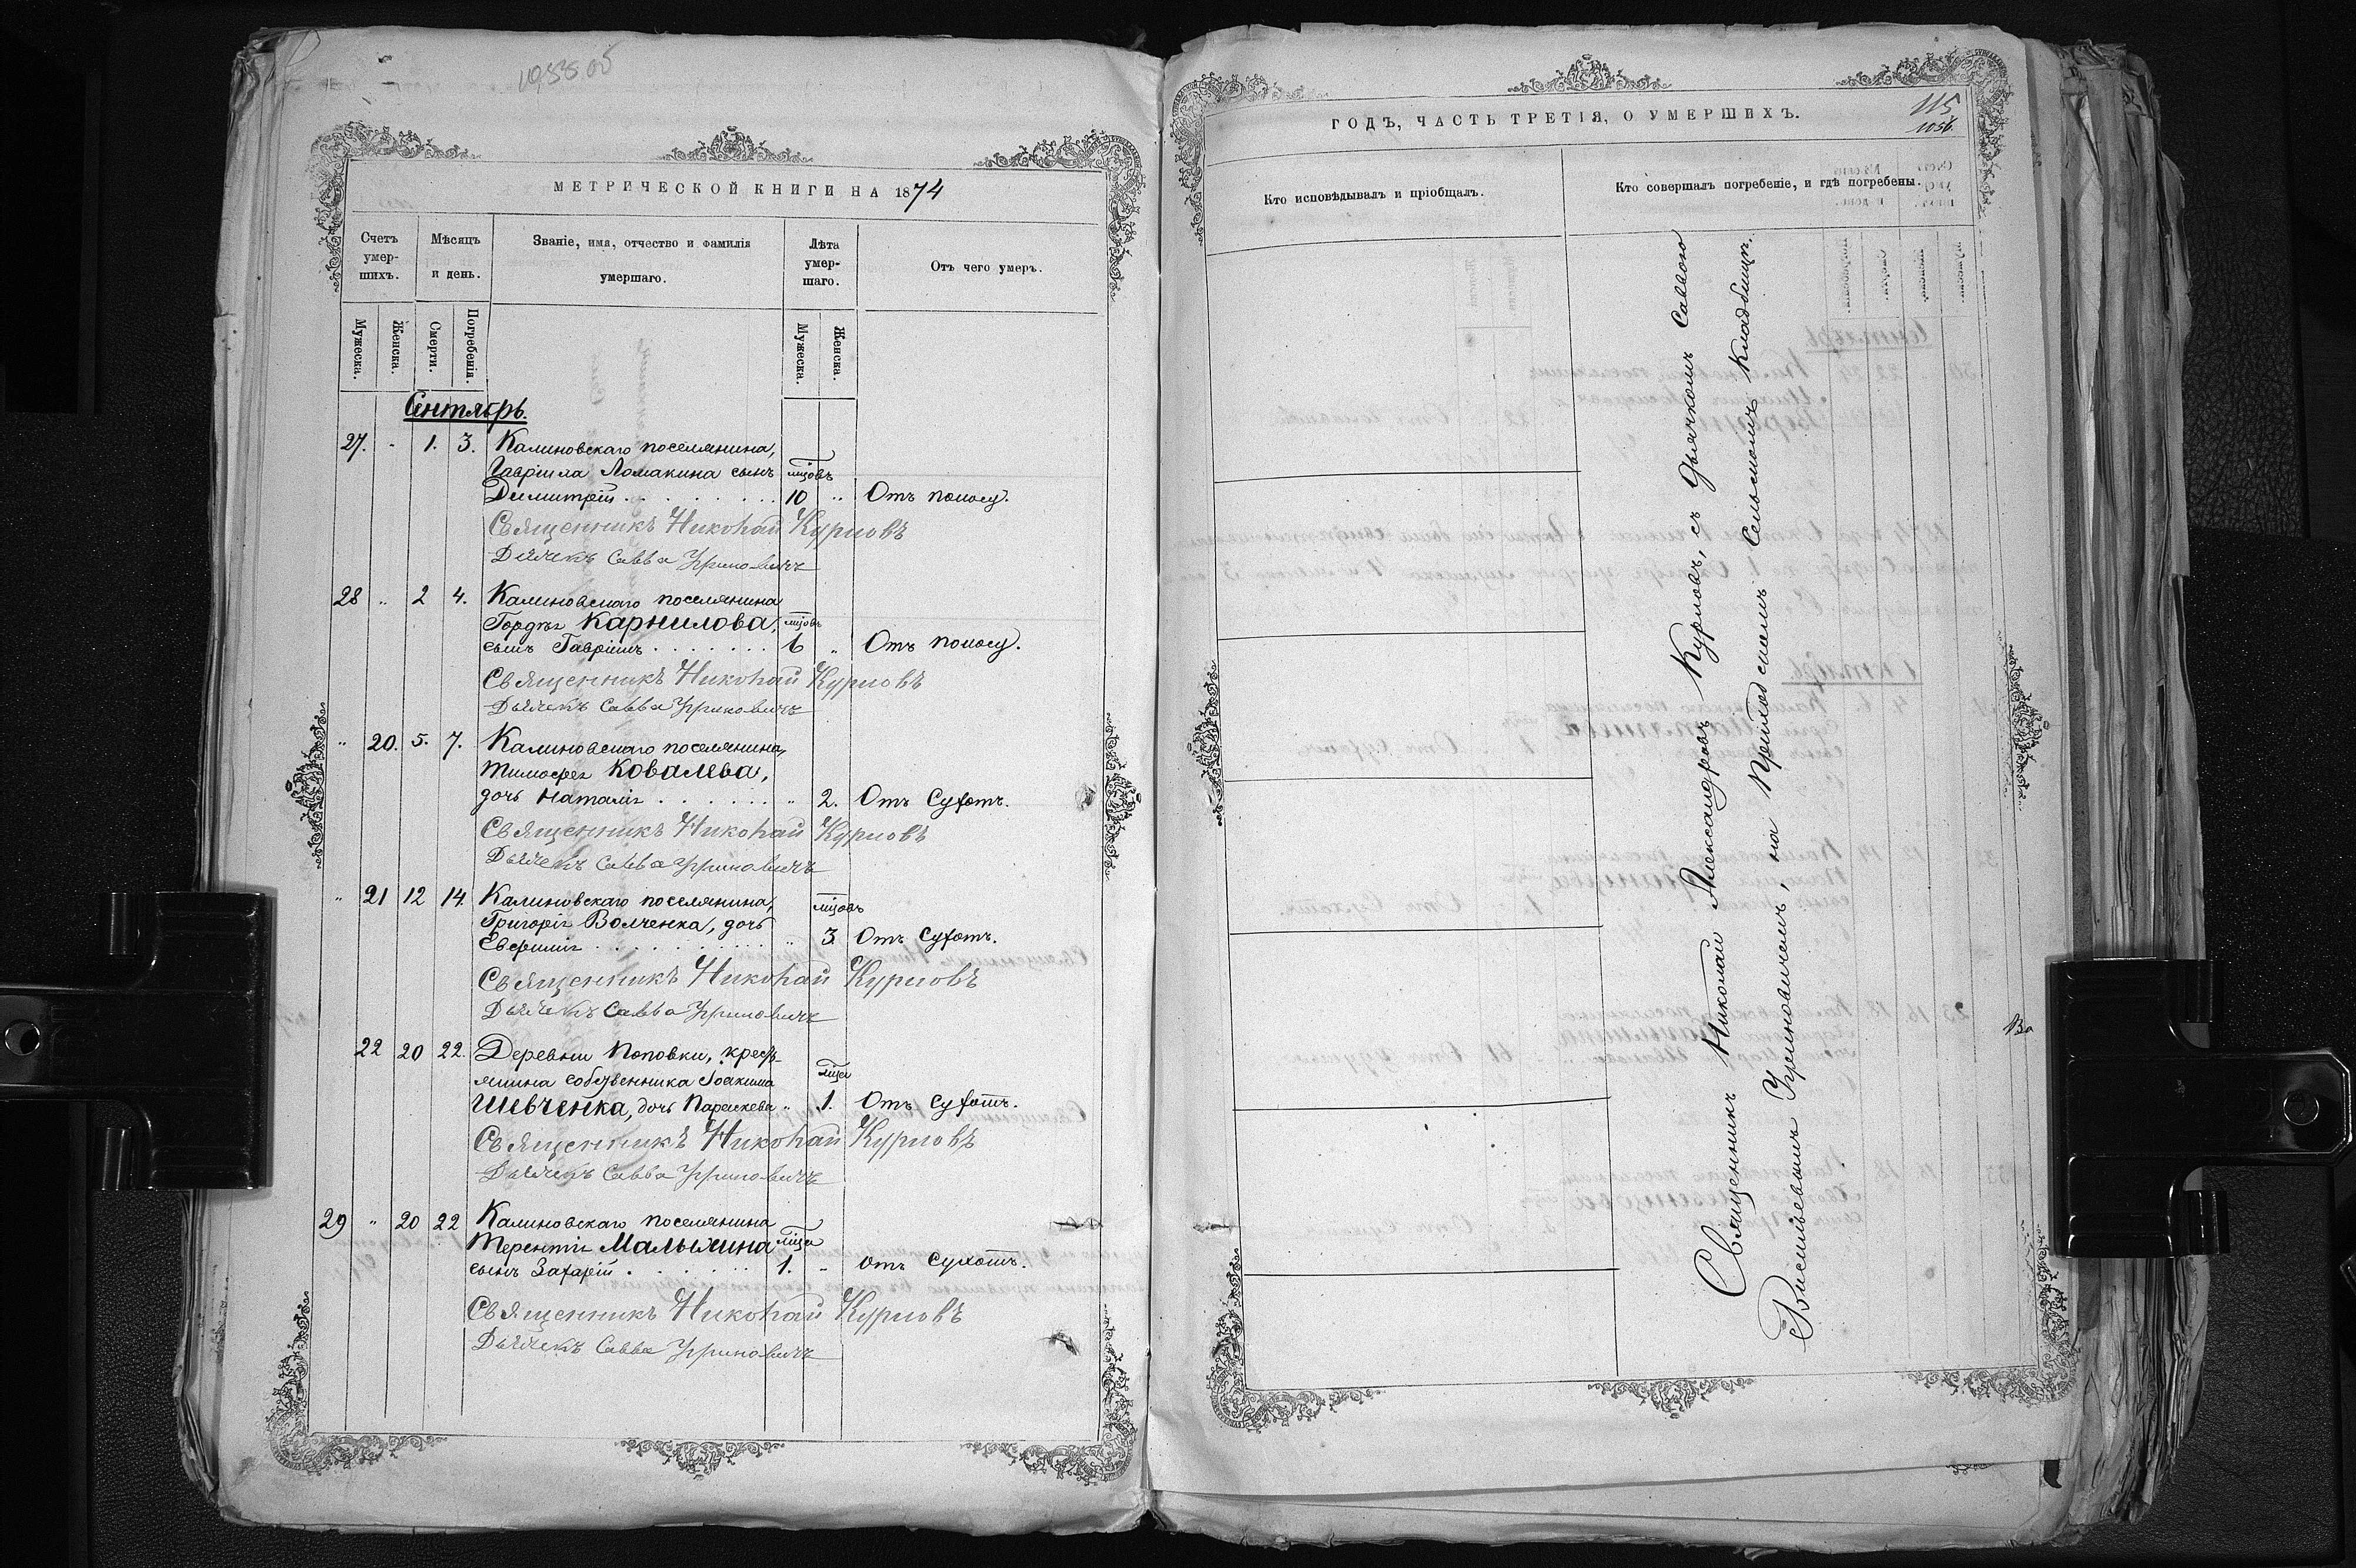 МЕТРИЧЕСКОЙ КНИГИ НА 1874
Счетъ умер-шихъ.
Мѣсяцъ и день.
Званіе, имя, отчество и фамилія умершаго.
Лѣта умер-шаго.
Отъ чего умеръ.
Мужеска.
Женска.
Смерти.
Погребенія.
Мужеска.
Женска.
Сентябрь.
27. - 1. 3. Калиновскаго поселянина,
Гавріила Ломакина сынъ мцовъ
Димитрій 10 " Отъ поносу.
Священникъ Николай Курловъ
Дьячекъ Савва Уриновичъ
28 " 2 4. Калиновскаго поселянина
Гордѣя Карнилова, мцовъ
сынъ Гавріилъ 6 " Отъ поносу.
Священникъ Николай Курловъ
Дьячекъ Савва Уриновичъ
" 20. 5. 7. Калиновскаго поселянина,
Тимофея Ковалева,
дочь Наталія " 2. Отъ Сухотъ.
Священникъ Николай Курловъ
Дьячекъ Савва Уриновичъ
" 21 12 14. Калиновскаго поселянина, мцовъ
Григорія Волченка, дочь
Евфимія " 3 Отъ Сухотъ.
Священникъ Николай Курловъ
Дьячекъ Савва Уриновичъ
22 20 22. Деревни Поповки, кресть-
янина собственника Іоакима мца
Шевченка, дочь Параскева " 1. Отъ Сухотъ.
Священникъ Николай Курловъ
Дьячекъ Савва Уриновичъ
29 " 20 22 Калиновскаго поселянина
Терентія Малыхина мца
сынъ Захарій 1. " Отъ Сухотъ.
Священникъ Николай Курловъ
Дьячекъ Савва Уриновичъ
ГОДЪ, ЧАСТЬ ТРЕТІЯ, О УМЕРШИХЪ.
115
1056.
Кто исповѣдывалъ и пріобщалъ.
Кто совершалъ погребеніе, и гдѣ погребены.
Священникъ Николай Александровъ Курловъ, съ дьячкомъ Саввою
Васильевымъ Уриновичемъ, на Приходскомъ Сельскомъ Кладбищѣ.